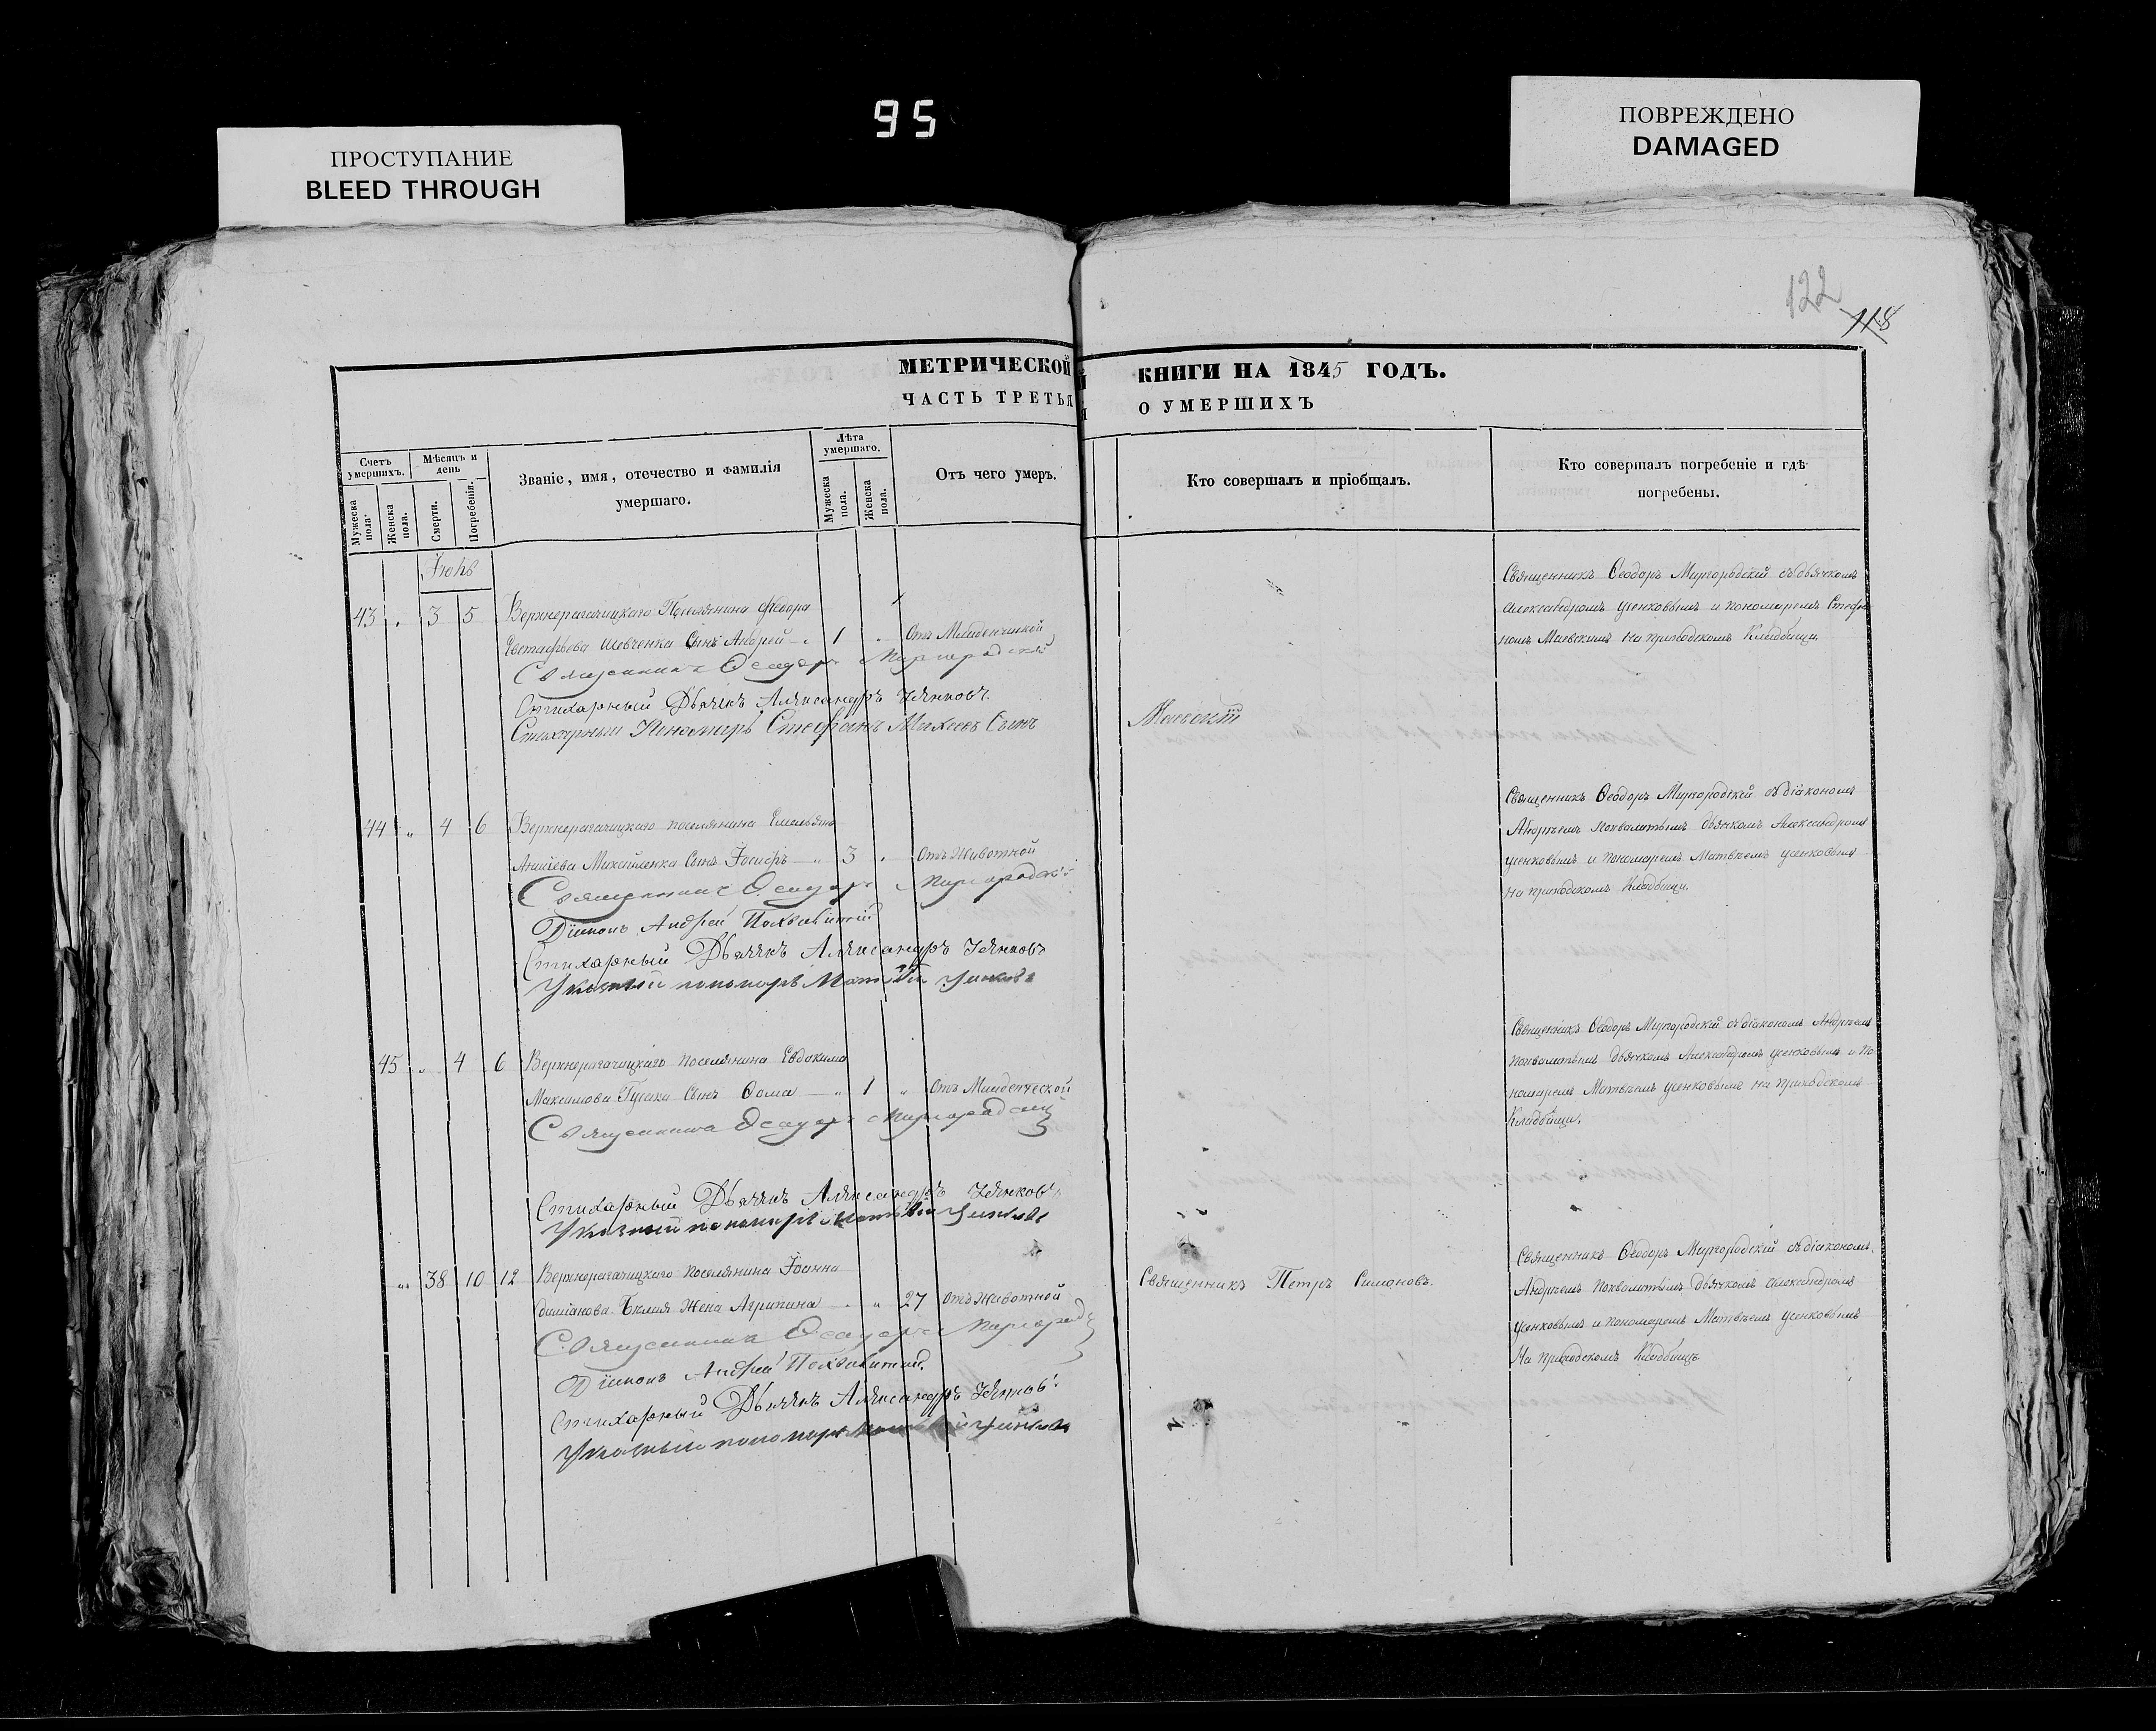 95
ПРОСТУПАНИЕ
BLEED THROUGH
ПОВРЕЖДЕНО
DAMAGED
122
118
МЕТРИЧЕСКОЙ КНИГИ НА 1845 ГОДЪ.
ЧАСТЬ ТРЕТЬЯ О УМЕРШИХЪ
Счетъ умершихъ.
Мужеска пола.
Женска пола.
Мѣсяцъ и день
Смерти.
Погребенія.
Званіе, имя, отечество и фамилія
умершаго.
Лѣта умершаго.
Мужеска пола.
Женска пола.
Отъ чего умеръ.
Кто совершалъ и пріобщалъ.
Кто совершалъ погребеніе и гдѣ
погребены.
43 3 5 Верхнерагачицкаго Поселянина Федора
Евстафьева Шевченка Сынъ Андрей 1 Отъ Младенческой
Священникъ Ѳеодоръ Миргородскій
Стихарный Дьячекъ Александръ Усенковъ
Стихарный Пономаръ Стефанъ Сынъ Маевский
Священникъ Ѳеодоръ Миргородскій съ дьячкомъ
Александромъ Усенковымъ и пономаремъ Стефа
номъ Маевскимъ на приходскомъ Кладбищи.
44 4 6 Верхнерагачицкаго поселянина Емельяна
Михайленка Сынъ Іосифъ 3 Отъ Животной
Священникъ Ѳеодоръ Миргородскій
Діаконъ Андрей Похвалитый
Стихарный Дьячекъ Александръ Усенковъ
Указный пономаръ Матвѣй Усенковъ
Священникъ Ѳеодоръ Миргородскій съ діакономъ
Андреемъ Похвалитымъ дьячкомъ Александромъ
Усенковымъ и пономаремъ Матвѣемъ Усенковымъ
на приходскомъ Кладбищи.
45 4 6 Верхнерагачицкаго поселянина Евдокима
Максимова Гусака Сынъ Ѳома 1 Отъ Младенческой
Священникъ Ѳеодоръ Миргородскій
Стихарный Дьячекъ Александръ Усенковъ
Указный пономаръ Матвѣй Усенковъ
Священникъ Ѳеодоръ Миргородскій съ діакономъ Андреемъ
Похвалитымъ дьячкомъ Александромъ Усенковымъ и По
номаремъ Матвѣемъ Усенковымъ на приходскомъ
Кладбищи.
38 10 12 Верхнерагачицкаго поселянина Іоанна
Жена Агрипина 27 Отъ Животной
Священникъ Ѳеодоръ
Діаконъ Андрей Похвалитый
Стихарный Дьячекъ Александръ Усенковъ
Указный пономаръ Усенковъ
Священникъ Петръ Симоновъ.
Священникъ Ѳеодоръ Миргородскій съ діакономъ
Андреемъ Похвалитымъ дьячкомъ Александромъ
Усенковымъ и пономаремъ Матвѣемъ Усенковымъ
На приходскомъ Кладбищѣ